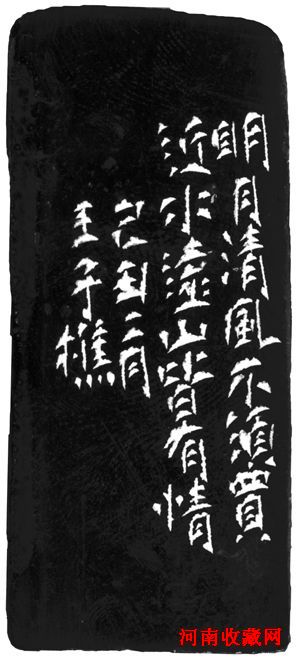 明月清風不須買
近水遠山皆有情
己酉二月
王子樵
河南收藏网